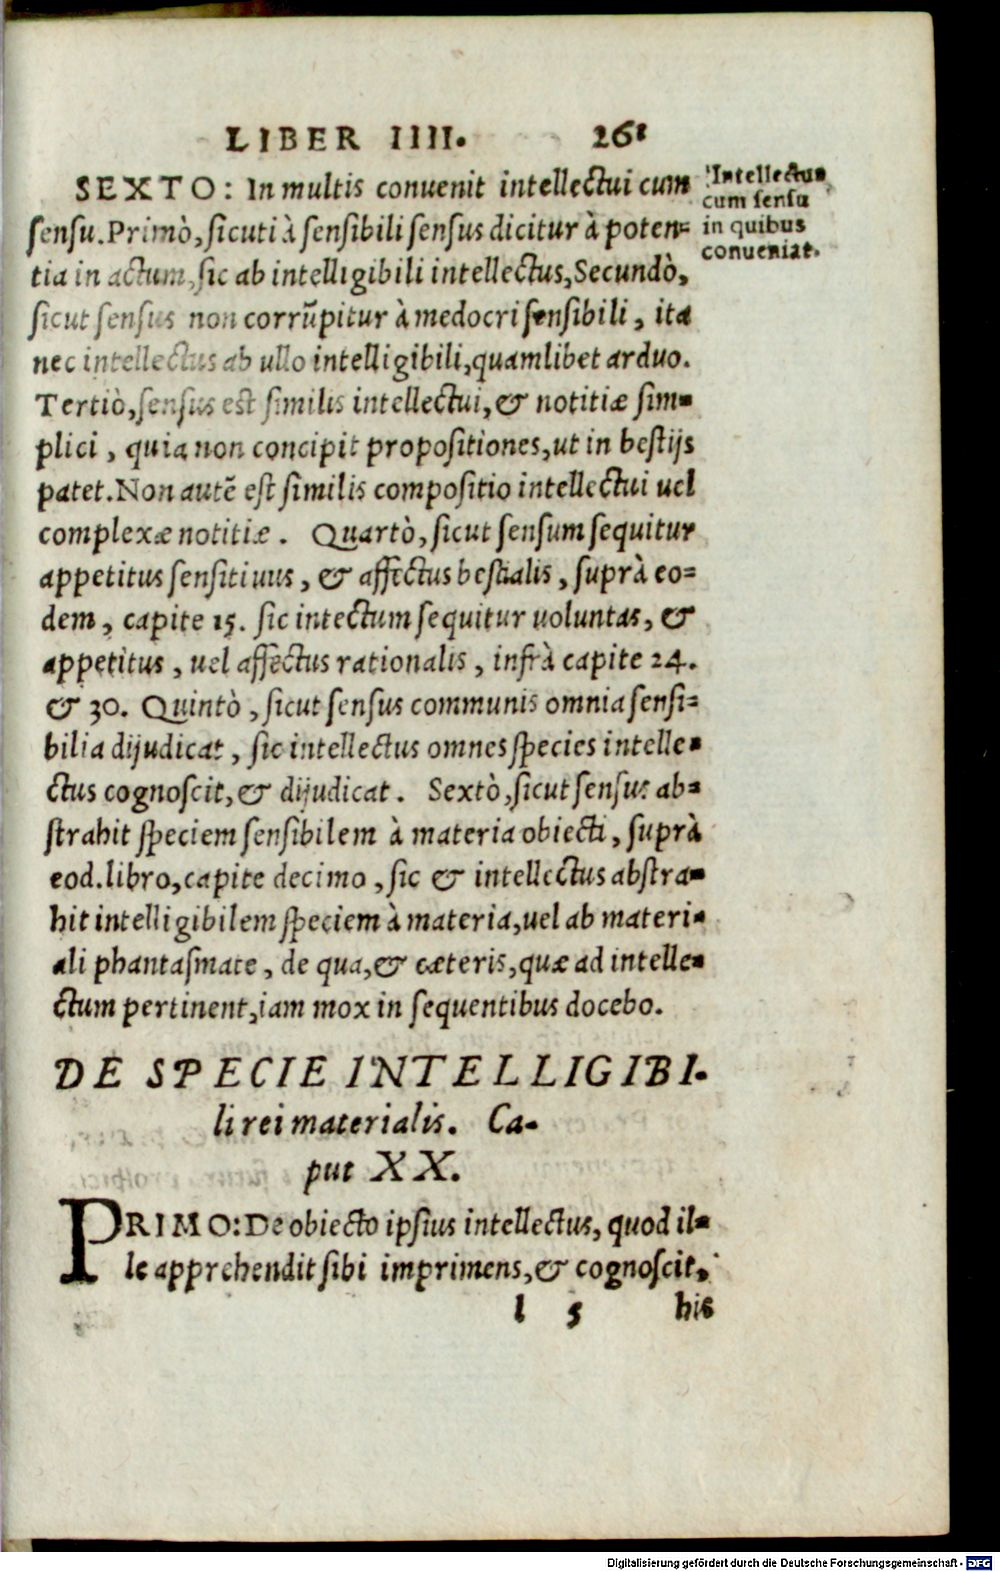 LIBER IIII. 261
SEXTO: In multis conuenit intellectui cum
sensu. Primò, sicuti à sensibili sensus dicitur à poten-
tia in actum, sic ab intelligibili intellectus, Secundò,
sicut sensus non corrũpitur à medocri sensibili, ita
nec intellectus ab ullo intelligibili, quamlibet arduo.
Tertiò, sensus est similis intellectui, & notitiæ sim-
plici, quia non concipit propositiones, ut in bestijs
patet. Non autẽ est similis compositio intellectui uel
complexæ notitiæ. Quartò, sicut sensum sequitur
appetitus sensitiuus, & affectus bestialis, suprà eo-
dem, capite 15. sic intectum sequitur uoluntas, &
appetitus, uel affectus rationalis, infrà capite 24.
& 30. Quintò, sicut sensus communis omnia sensi-
bilia dijudicat, sic intellectus omnes species intelle-
ctus cognoscit, & dijudicat. Sextò, sicut sensus ab-
strahit speciem sensibilem à materia obiecti, suprà
eod. libro, capite decimo, sic & intellectus abstra-
hit intelligibilem speciem à materia, uel ab materi-
ali phantasmate, de qua, & cæteris, quæ ad intelle-
ctum pertinent, iam mox in sequentibus docebo.
Intellectus
cum sensu
in quibus
conueniat.
DE SPECIE INTELLIGIBI-
li rei materialis. Ca-
put XX.
PRIMO: De obiecto ipsius intellectus, quod il-
le apprehendit sibi imprimens, & cognoscit,
l 5 his
Digitalisierung gefördert durch die Deutsche Forschungsgemeinschaft - DFG